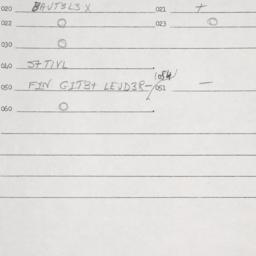 020 BAVTSLSX 021 +
022 O 023 O
030 O
040 STTIVL
050 FIN GITBY LEVD3R- 051 —
060 O